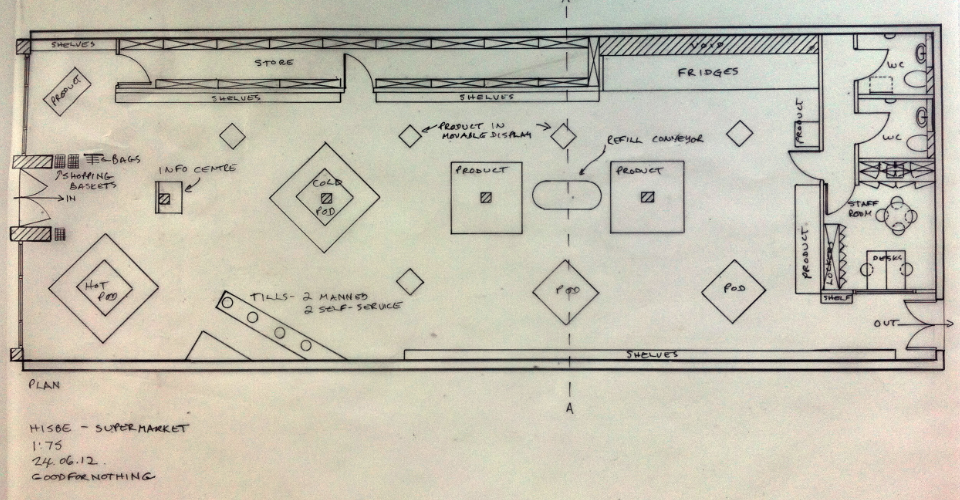 A
SHELVES
STORE
VOID
FRIDGES
WC
PRODUCT
SHELVES
SHELVES
PRODUCT IN
MOVABLE DISPLAY
REFILL CONVEYOR
PRODUCT
WC
BAGS
SHOPPING
BASKETS
INFO CENTRE
IN
COLD
POD
PRODUCT
PRODUCT
STAFF
ROOM
PRODUCT
LOCKERS
DESKS
HOT
POD
TILLS- 2 MANNED
2 SELF-SERVICE
POD
POD
SHELF
OUT
SHELVES
PLAN
A
HISBE - SUPERMARKET
1:75
24.06.12.
GOODFORNOTHING